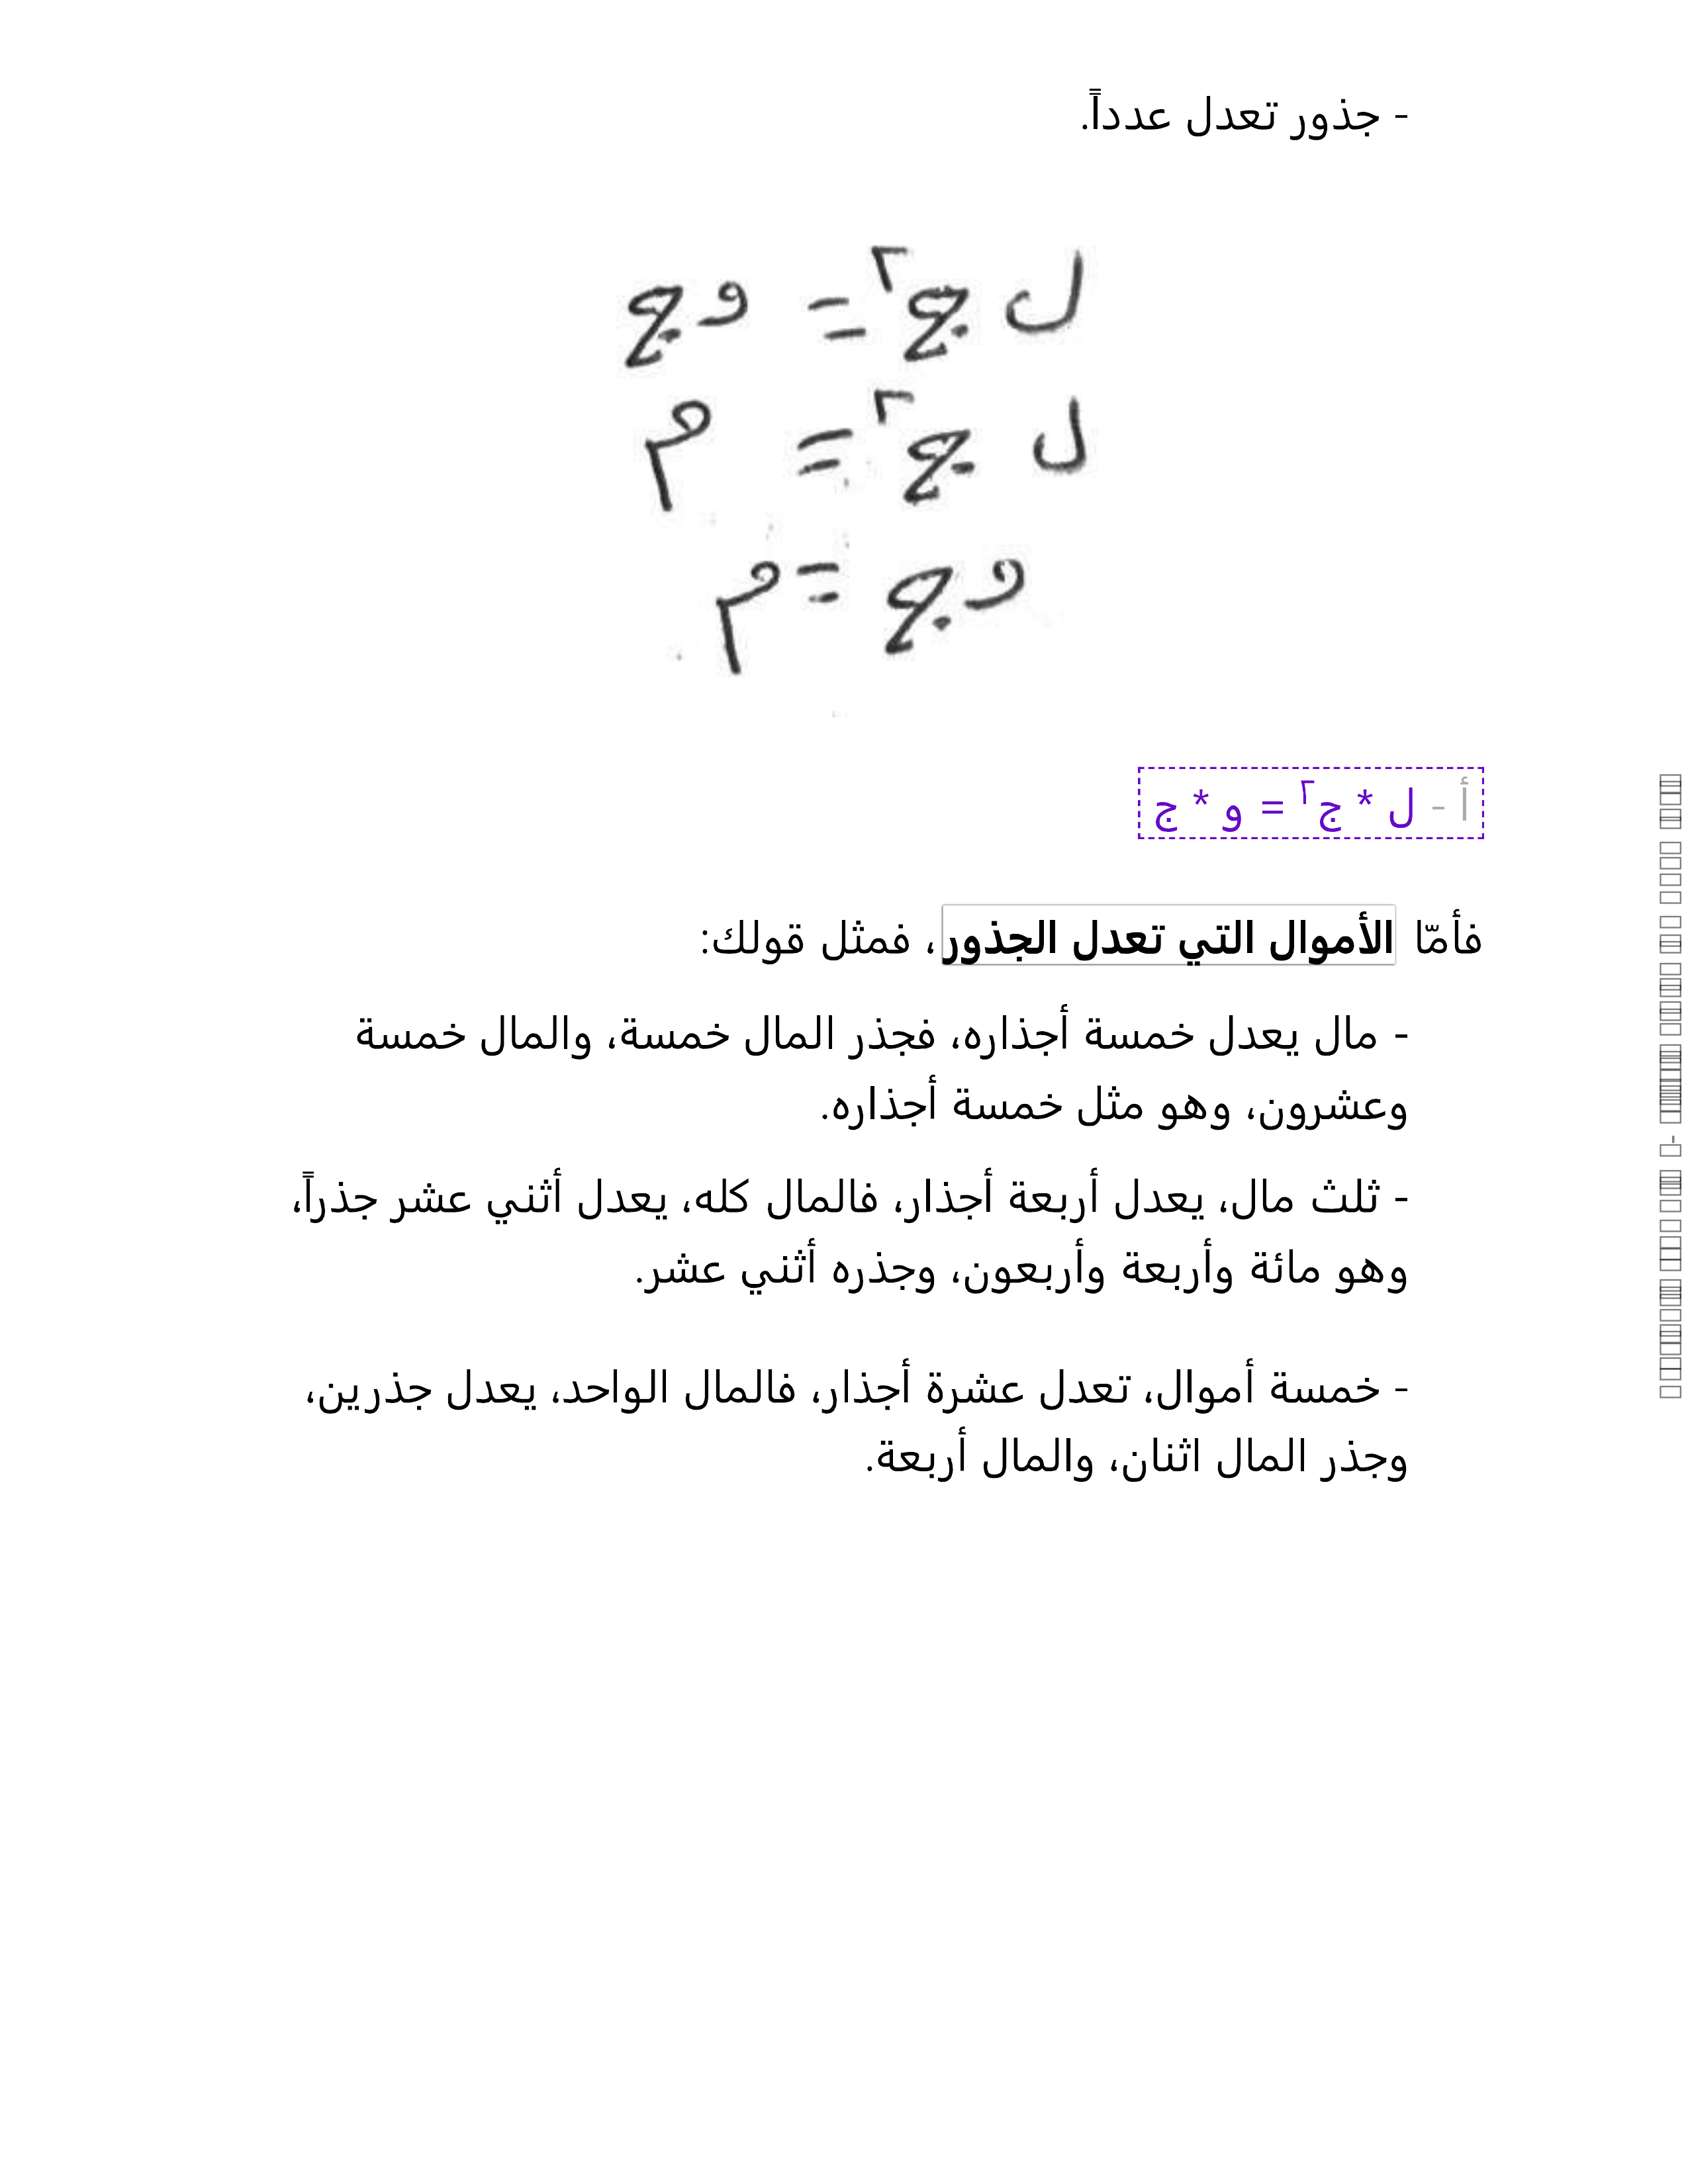 - جذور تعدل عدداً.
ل ج٢ = و ج
ل ج٢ = م
و ج = م
أ - ل * ج٢ = و * ج
فأمّا الأموال التي تعدل الجذور، فمثل قولك:
- مال يعدل خمسة أجذاره، فجذر المال خمسة، والمال خمسة
وعشرون، وهو مثل خمسة أجذاره.
- ثلث مال، يعدل أربعة أجذار، فالمال كله، يعدل أثني عشر جذراً،
وهو مائة وأربعة وأربعون، وجذره أثني عشر.
- خمسة أموال، تعدل عشرة أجذار، فالمال الواحد، يعدل جذرين،
وجذر المال اثنان، والمال أربعة.